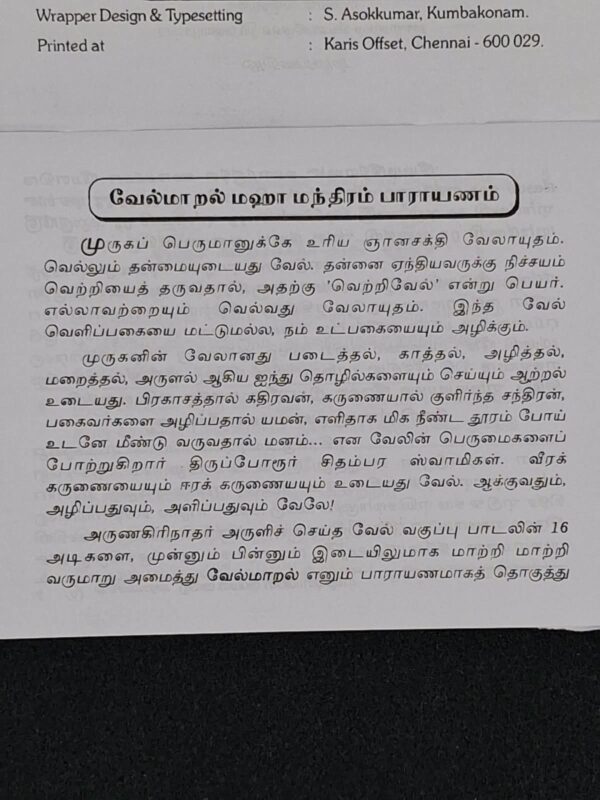 Wrapper Design & Typesetting : S. Asokkumar, Kumbakonam.
Printed at : Karis Offset, Chennai - 600 029.
வேல்மாறல் மஹா மந்திரம் பாராயணம்
முருகப் பெருமானுக்கே உரிய ஞானசக்தி வேலாயுதம்.
வெல்லும் தன்மையுடையது வேல். தன்னை ஏந்தியவருக்கு நிச்சயம்
வெற்றியைத் தருவதால், அதற்கு 'வெற்றிவேல்' என்று பெயர்.
எல்லாவற்றையும் வெல்வது வேலாயுதம். இந்த வேல்
வெளிப்பகையை மட்டுமல்ல, நம் உட்பகையையும் அழிக்கும்.
முருகனின் வேலானது படைத்தல், காத்தல், அழித்தல்,
மறைத்தல், அருளல் ஆகிய ஐந்து தொழில்களையும் செய்யும் ஆற்றல்
உடையது. பிரகாசத்தால் கதிரவன், கருணையால் குளிர்ந்த சந்திரன்,
பகைவர்களை அழிப்பதால் யமன், எளிதாக மிக நீண்ட தூரம் போய்
உடனே மீண்டு வருவதால் மனம்... என வேலின் பெருமைகளைப்
போற்றுகிறார் திருப்போரூர் சிதம்பர ஸ்வாமிகள். வீரக்
கருணையையும் ஈரக் கருணயையும் உடையது வேல். ஆக்குவதும்,
அழிப்பதுவும், அளிப்பதுவும் வேலே!
அருணகிரிநாதர் அருளிச் செய்த வேல் வகுப்பு பாடலின் 16
அடிகளை, முன்னும் பின்னும் இடையிலுமாக மாற்றி மாற்றி
வருமாறு அமைத்து வேல்மாறல் எனும் பாராயணமாகத் தொகுத்து